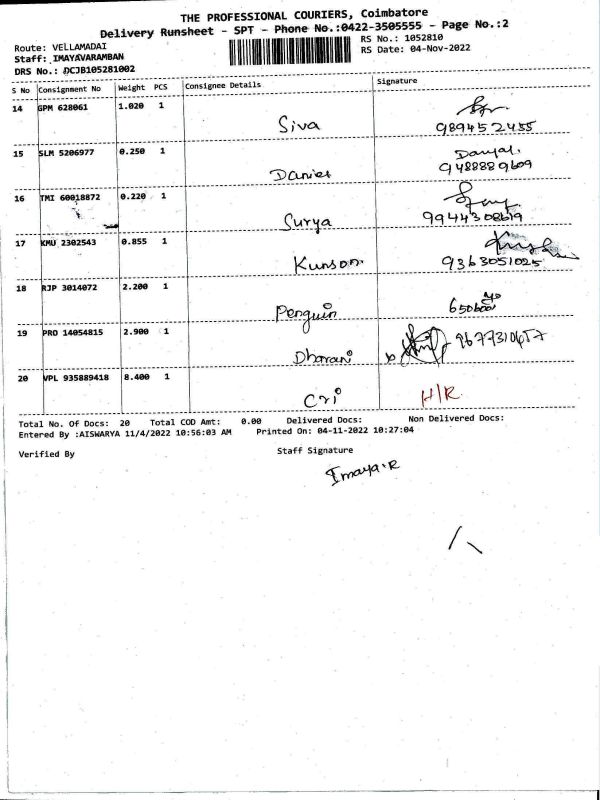 THE PROFESSIONAL COURIERS, Coimbatore
Delivery Runsheet - SPT - Phone No.:0422-3505555 - Page No.:2
Route: VELLAMADAI
RS No.: 1052810
Staff: IMAYAVARAMBAN
RS Date: 04-Nov-2022
DRS No.: DCJB105281002
S No Consignment No Weight PCS Consignee Details Signature
14 GPM 628061 1.020 1
Siva 9894552455
15 SLM 5206977 0.250 1
Daniel 9488889609
16 TMI 60018872 0.220 1
Surya 9944308619
17 KMU 2302543 0.855 1
Kunson 9363051025
18 RJP 3014072 2.200 1
Penguin
19 PRO 14054815 2.900 1
Dharani
20 VPL 935889418 8.400 1
Cri H/R
Total No. Of Docs: 20 Total COD Amt: 0.00 Delivered Docs: Non Delivered Docs:
Entered By :AISWARYA 11/4/2022 10:56:03 AM Printed On: 04-11-2022 10:27:04
Verified By Staff Signature
Imaya.R